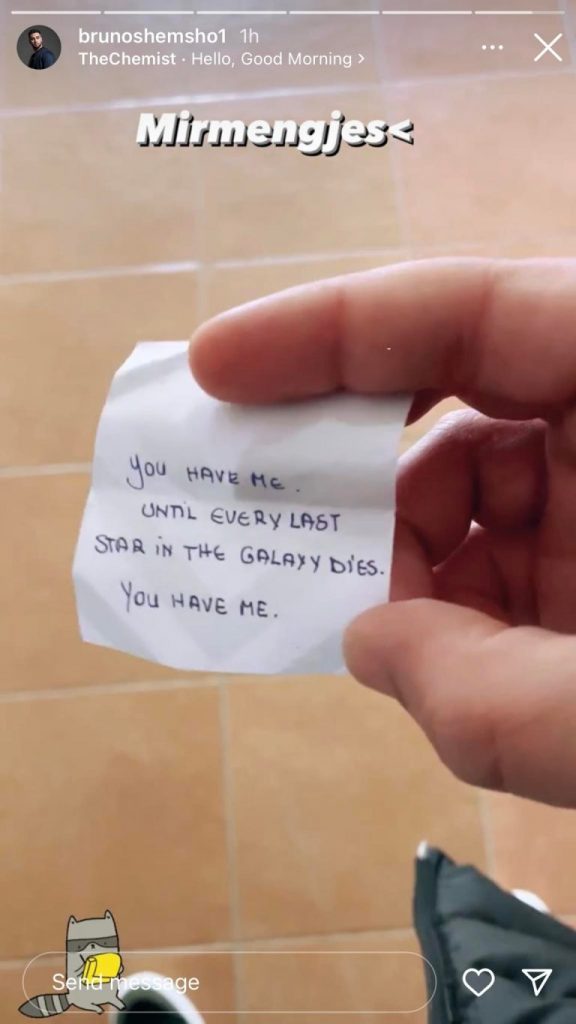 brunoshemsho1 1h
TheChemist · Hello, Good Morning >
Mirmengjes<
YOU HAVE ME.
UNTIL EVERY LAST
STAR IN THE GALAXY DIES.
YOU HAVE ME.
Send message